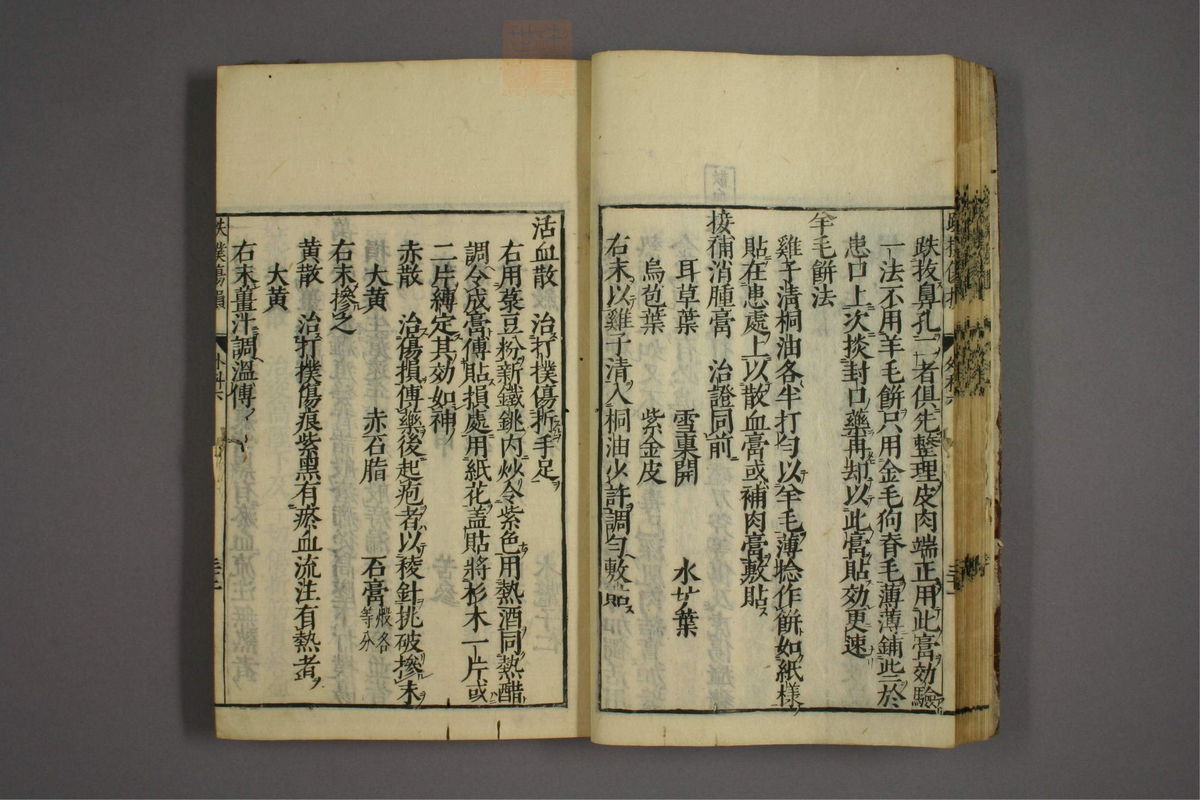 跌抜鼻孔一者俱先整理皮肉端正用此膏効驗
一法不用羊毛餅只用金毛狗脊毛薄薄鋪些於
患口上次掞封口藥再却以此膏貼効更速
羊毛餅法
雞子清桐油各半打勻以羊毛薄捻作餅如紙様
貼在患處上以散血膏或補肉膏敷貼
接補消腫膏　治證同前
耳草葉　雪裏開　水艹葉
烏苞葉　紫金皮
右末以雞子清入桐油少許調勻敷貼
活血散　治打撲傷折手足
右用菉豆粉新鐵銚内炒令紫色用熱酒同熱醋
調令成膏傅貼損處用紙花蓋貼將杉木一片或
二片縛定其効如神
赤散　治傷損傅藥後起疱者以稜針挑破摻末
大黄　赤石脂　石膏般各等分
右末摻之
黄散　治打撲傷痕紫黒有瘀血流注有熱者
大黄
右末薑汁調溫傅